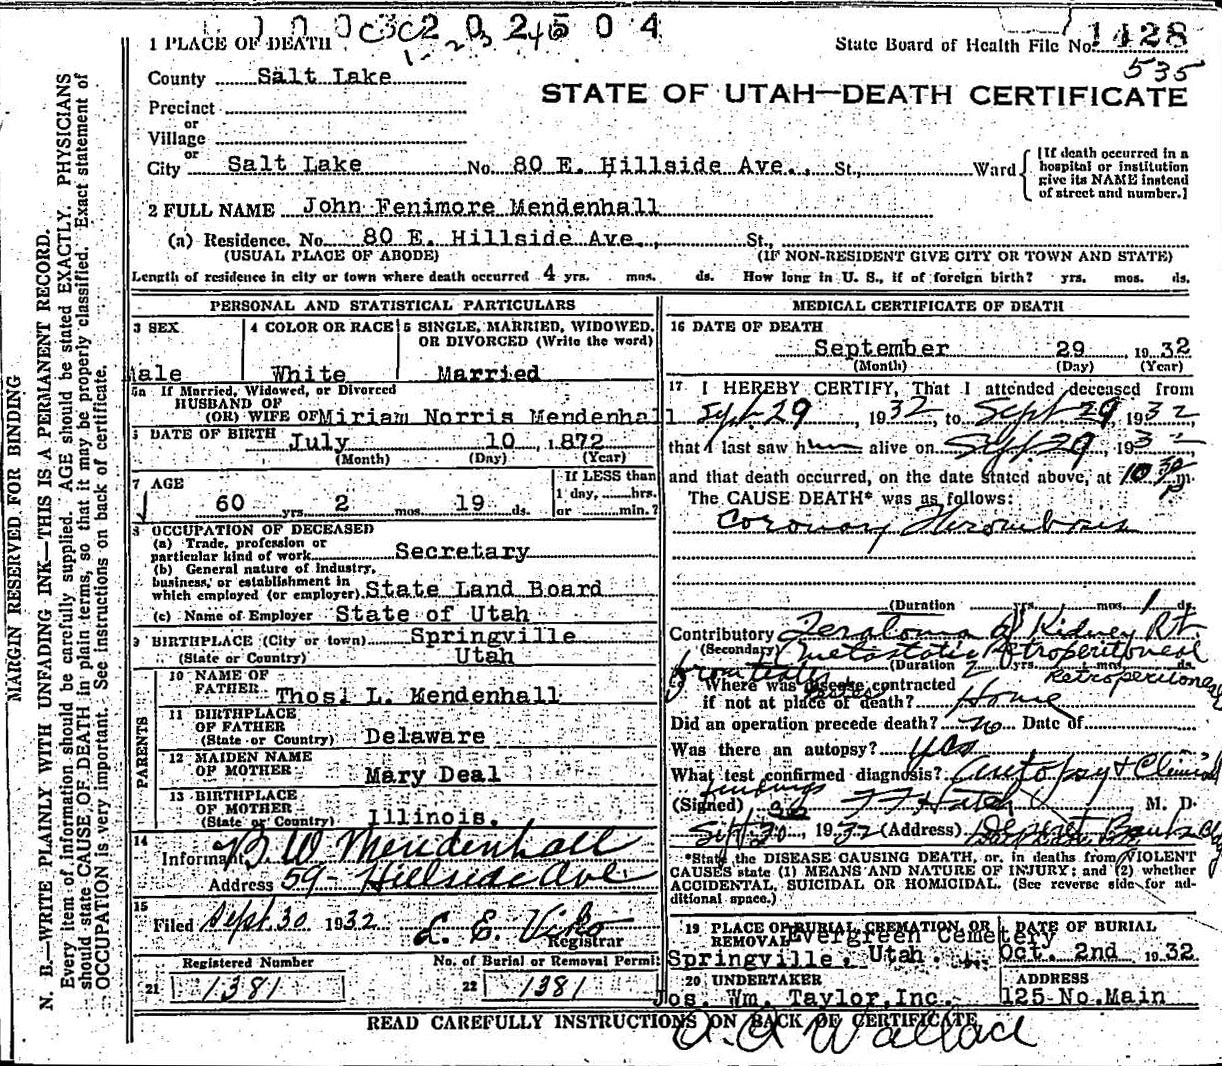 1 0 0 3 2 0 2 4 5 0 4
1 PLACE OF DEATH
State Board of Health File No. 1428
535
County Salt Lake
STATE OF UTAH—DEATH CERTIFICATE
Precinct
or
Village
or
City Salt Lake No. 80 E. Hillside Ave., St., Ward
[If death occurred in a hospital or institution give its NAME instead of street and number.]
2 FULL NAME John Fenimore Mendenhall
(a) Residence. No. 80 E. Hillside Ave., St.,
(USUAL PLACE OF ABODE) (IF NON-RESIDENT GIVE CITY OR TOWN AND STATE)
Length of residence in city or town where death occurred 4 yrs. mos. ds. How long in U. S., if of foreign birth? yrs. mos. ds.
MARGIN RESERVED FOR BINDING
N. B.—WRITE PLAINLY WITH UNFADING INK—THIS IS A PERMANENT RECORD.
Every item of information should be carefully supplied. AGE should be stated EXACTLY. PHYSICIANS
should state CAUSE OF DEATH in plain terms, so that it may be properly classified. Exact statement of
OCCUPATION is very important. See instructions on back of certificate.
PERSONAL AND STATISTICAL PARTICULARS
3 SEX
Male
4 COLOR OR RACE
White
5 SINGLE, MARRIED, WIDOWED, OR DIVORCED (Write the word)
Married
5a If Married, Widowed, or Divorced
HUSBAND OF
(OR) WIFE OF Miriam Norris Mendenhall
6 DATE OF BIRTH July 10, 1872
(Month) (Day) (Year)
7 AGE
60 yrs. 2 mos. 19 ds.
If LESS than
1 day, hrs.
or min.?
8 OCCUPATION OF DECEASED
(a) Trade, profession or
particular kind of work Secretary
(b) General nature of industry,
business, or establishment in
which employed (or employer) State Land Board
(c) Name of Employer State of Utah
9 BIRTHPLACE (City or town) Springville
(State or Country) Utah
PARENTS
10 NAME OF
FATHER Thos. L. Mendenhall
11 BIRTHPLACE
OF FATHER
(State or Country) Delaware
12 MAIDEN NAME
OF MOTHER Mary Deal
13 BIRTHPLACE
OF MOTHER
(State or Country) Illinois.
14
Informant B W Mendenhall
Address 59 - Hillside Ave
15
Filed Sept. 30 1932 Registrar
Registered Number
21 1381
No. of Burial or Removal Permit
22 1381
MEDICAL CERTIFICATE OF DEATH
16 DATE OF DEATH
September 29, 1932
(Month) (Day) (Year)
17 I HEREBY CERTIFY, That I attended deceased from
Sept. 29, 1932 to Sept 29, 1932
that I last saw him alive on Sept. 29, 1932
and that death occurred, on the date stated above, at 10 30 P m.
The CAUSE DEATH* was as follows:
Coronary Thrombosis
(Duration yrs. mos. 1 ds.
Contributory Teratoma of Kidney Rt.
(Secondary) Metastatic Retroperitoneal
(Duration 2 yrs. mos. ds.
from testes
Where was disease contracted
if not at place of death? Home
Did an operation precede death? no Date of
Was there an autopsy? yes
What test confirmed diagnosis? autopsy & Clinical
findings
(Signed) F F Hatch, M. D.
Sept 30, 1932 (Address) Deseret Bank Bldg
*State the DISEASE CAUSING DEATH, or, in deaths from VIOLENT
CAUSES state (1) MEANS AND NATURE OF INJURY; and (2) whether
ACCIDENTAL, SUICIDAL OR HOMICIDAL. (See reverse side for ad-
ditional space.)
19 PLACE OF BURIAL, CREMATION, OR REMOVAL
Evergreen Cemetery
Springville, Utah.
DATE OF BURIAL
Oct. 2nd 1932
20 UNDERTAKER
Jos. Wm. Taylor, Inc.
ADDRESS
125 No. Main
READ CAREFULLY INSTRUCTIONS ON BACK OF CERTIFICATE
Wallace